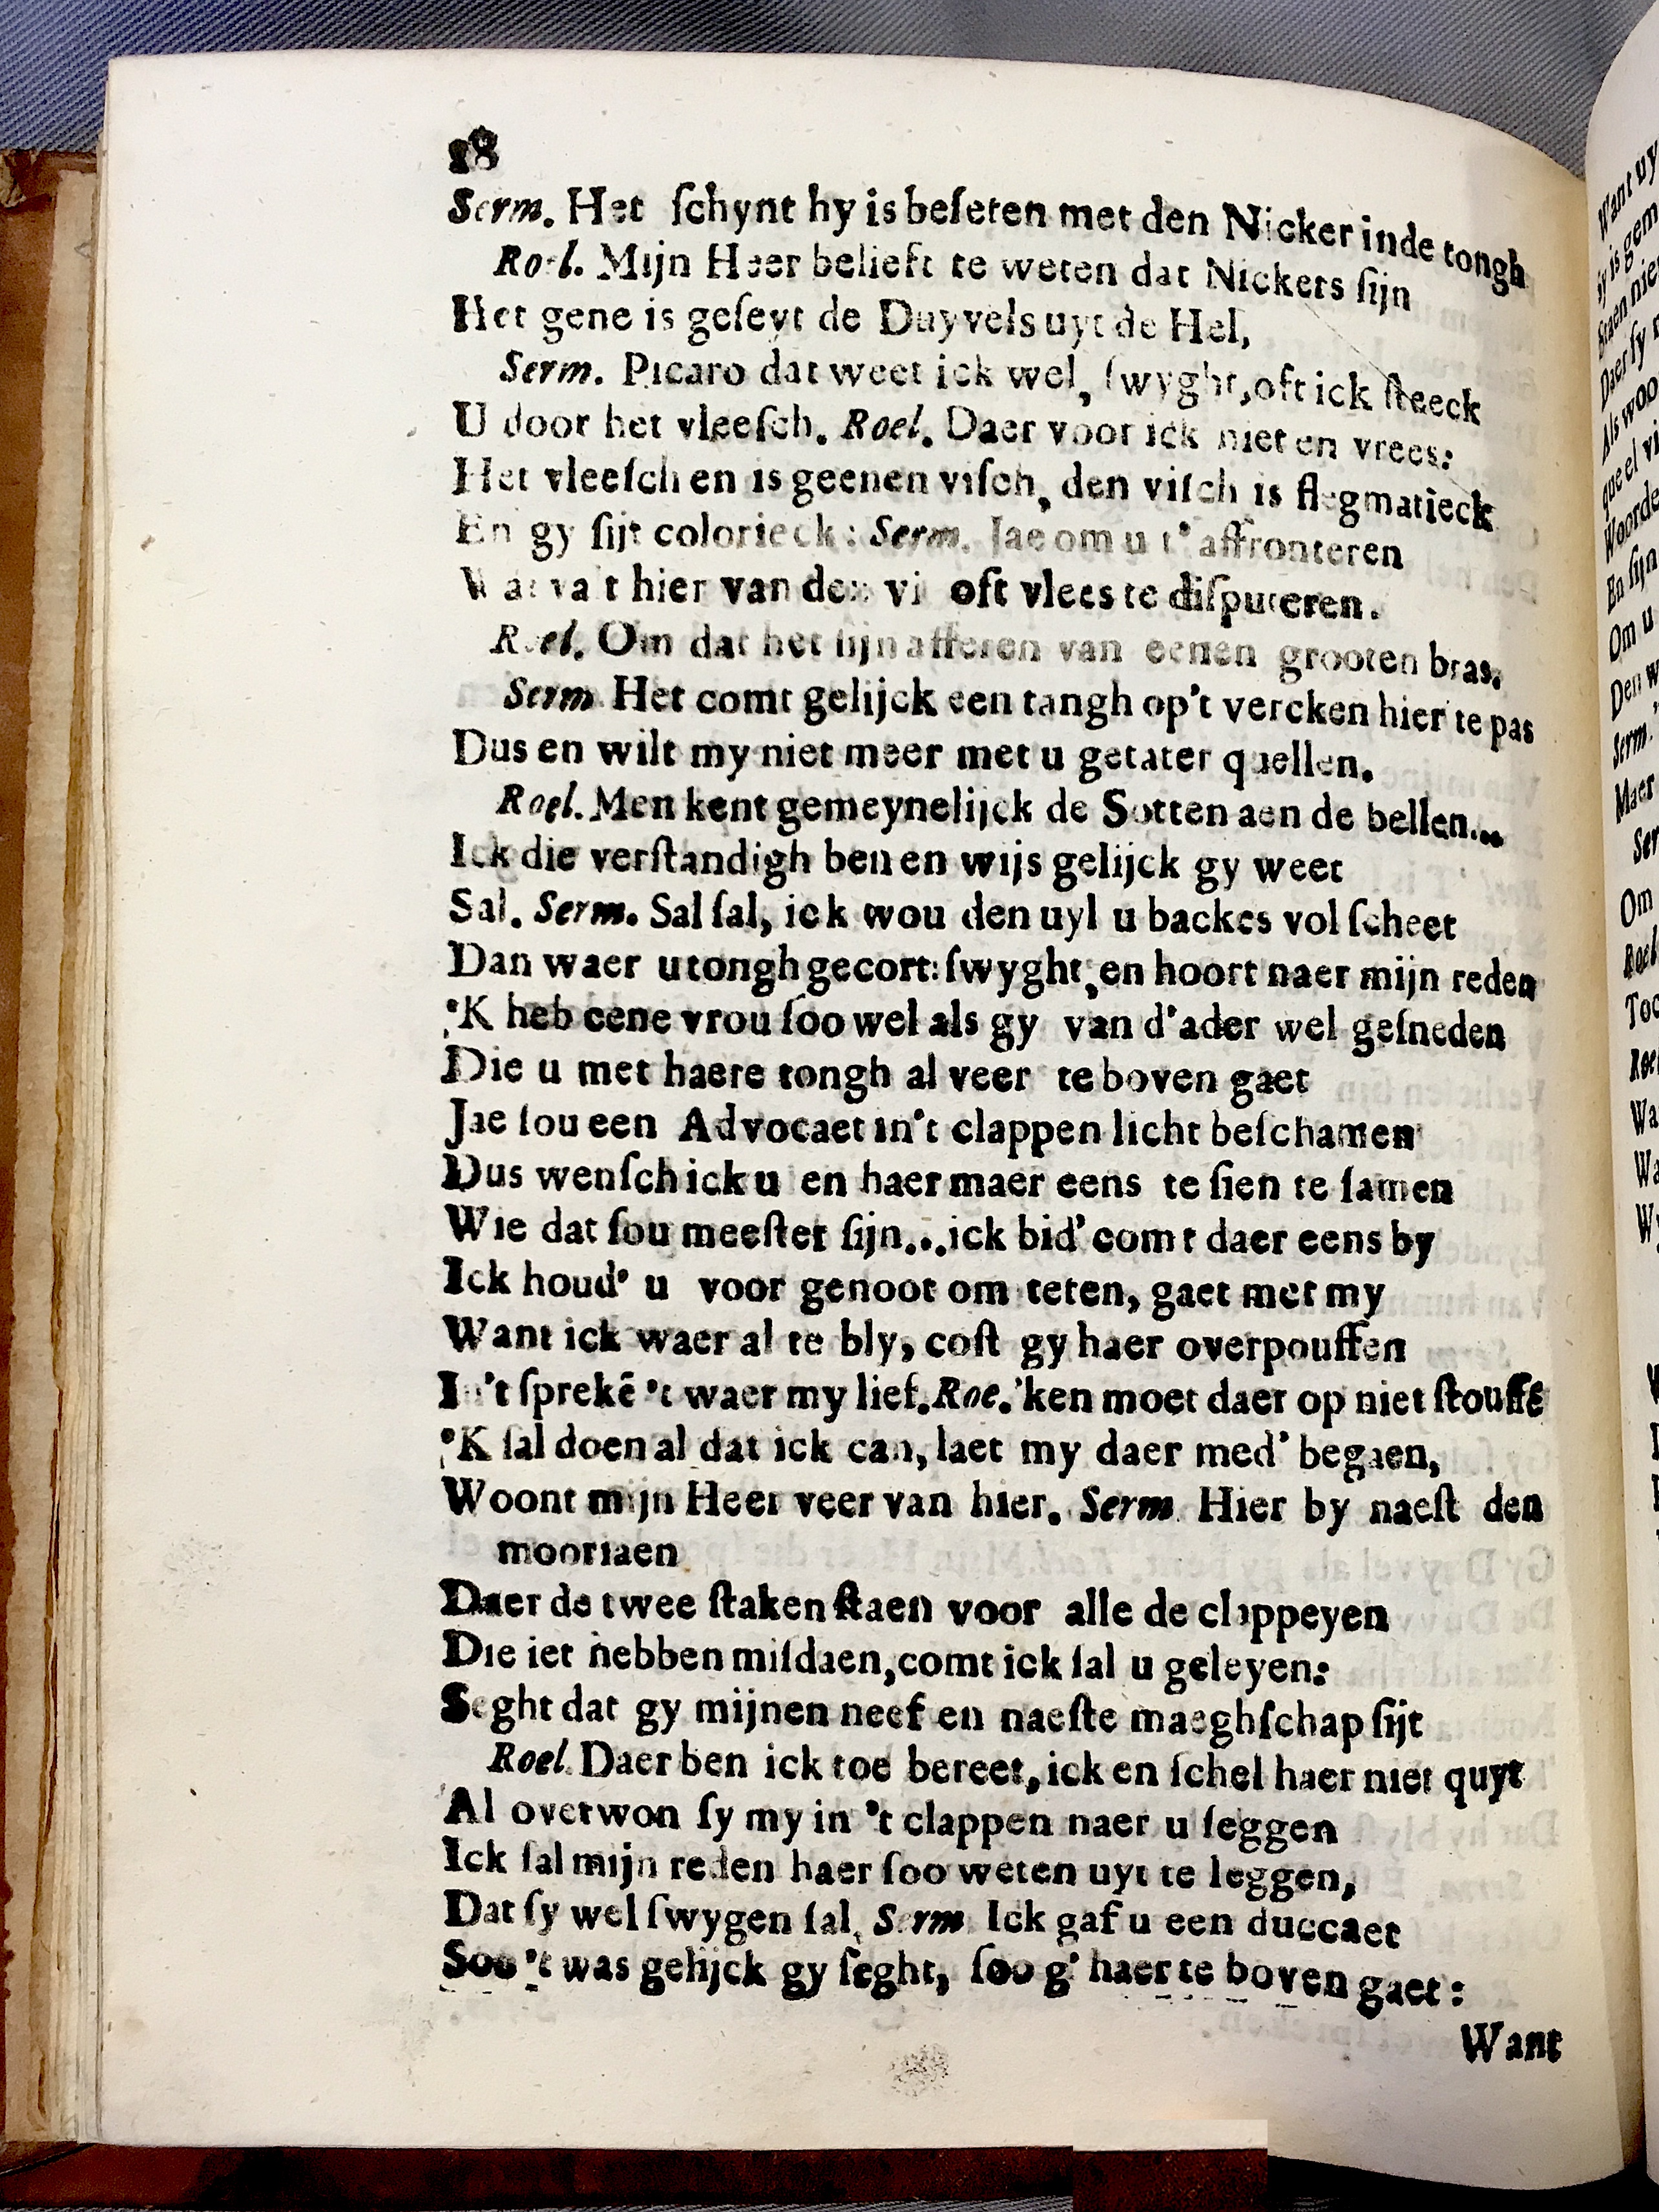 18
Serm. Het ſchynt hy is beſeten met den Nicker inde tongh
Roel. Mijn Heer belieft te weten dat Nickers ſijn
Het gene is geſeyt de Duyvels uyt de Hel,
Serm. Picaro dat weet ick wel, ſwyght, oft ick ſteeck
U door het vleeſch. Roel. Daer voor ick niet en vrees:
Het vleeſch en is geenen viſch, den viſch is flegmatieck
En gy ſijt colorieck: Serm. Jae om u t' affronteren
Wat va't hier van den vi oft vlees te diſputeren.
Roel. Om dat het ſijn afferen van eenen grooten bras,
Serm. Het comt gelijck een tangh op't vercken hier te pas
Dus en wilt my niet meer met u getater quellen.
Roel. Men kent gemeynelijck de Sotten aen de bellen...
Ick die verſtandigh ben en wijs gelijck gy weet
Sal. Serm. Sal ſal, ick wou den uyl u backes vol ſcheet
Dan waer u tongh gecort: ſwyght, en hoort naer mijn reden
'K heb eene vrou ſoo wel als gy van d'ader wel geſneden
Die u met haere tongh al veer te boven gaet
Jae ſou een Advocaet in't clappen licht beſchamen
Dus wenſch ick u en haer maer eens te ſien te ſamen
Wie dat ſou meeſter ſijn... ick bid' comt daer eens by
Ick houd' u voor genoot om teten, gaet met my
Want ick waer al te bly, coſt gy haer overpouffen
In't ſprekē 't waer my lief. Roe. 'ken moet daer op niet ſtouffē
'K ſal doen al dat ick can, laet my daer med' begaen,
Woont mijn Heer veer van hier. Serm. Hier by naeſt den
mooriaen
Daer de twee ſtaken ſtaen voor alle de clappeyen
Die iet hebben miſdaen, comt ick ſal u geleyen:
Seght dat gy mijnen neef en naeſte maeghſchap ſijt
Roel. Daer ben ick toe bereet, ick en ſchel haer niet quyt
Al overwon ſy my in 't clappen naer u ſeggen
Ick ſal mijn reden haer ſoo weten uyt te leggen,
Dat ſy wel ſwygen ſal, Serm. Ick gaf u een duccaet
Soo 't was gelijck gy ſeght, ſoo g' haer te boven gaet:
Want